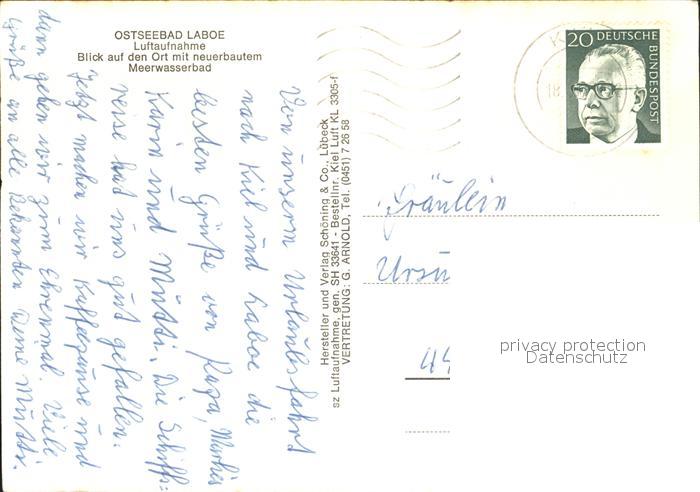 OSTSEEBAD LABOE
Luftaufnahme
Blick auf den Ort mit neuerbautem
Meerwasserbad
Von unserer Urlaubsfahrt
nach Kiel und Laboe die
besten Grüße von Papa,
Karin und Mutti. Die Schiffs=
reise hat uns gut gefallen.
Jetzt machen wir Kaffeepause und
dann gehen wir zum Ehrenmal. Viele
Grüße an alle Bekannten Deine Mutti.
Hersteller und Verlag Schöning & Co., Lübeck
sz Luftaufnahme, gen. SH 33641 - Bestellnr. Kiel Luft KL 3305-f
VERTRETUNG: G. ARNOLD, Tel. (0451) 7 26 58
20 DEUTSCHE
BUNDESPOST
18
Fräulein
Ursu
44
privacy protection
Datenschutz